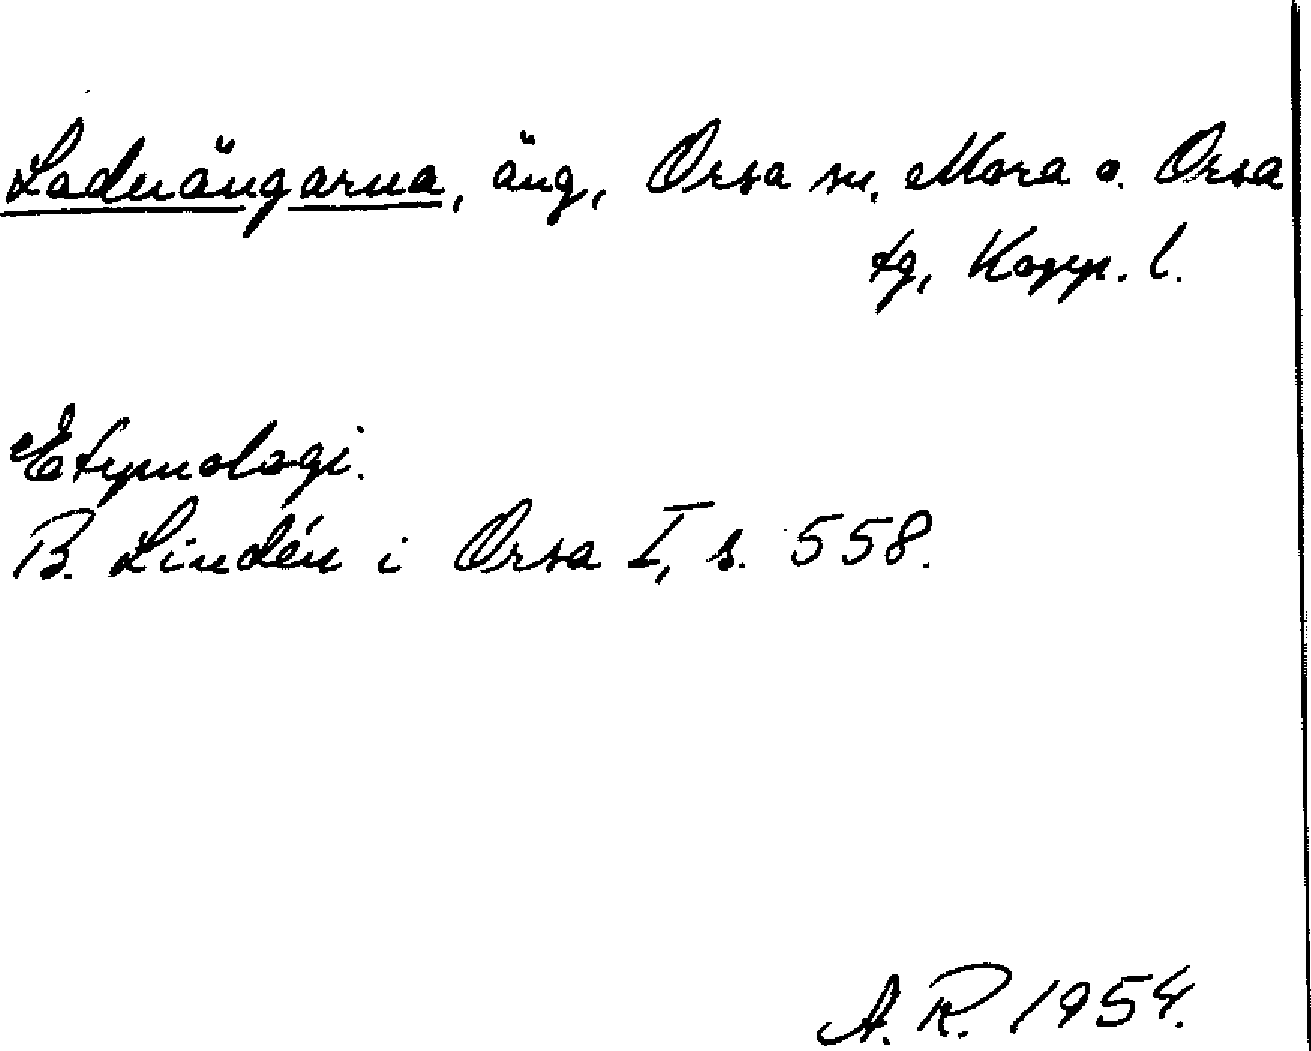 Laduängarna, äng, Orsa sn, Mora o. Orsa
tg, Kopp. l.
Etymologi.
B. Lindén i Orsa I, s. 558.
A. R. 1954.